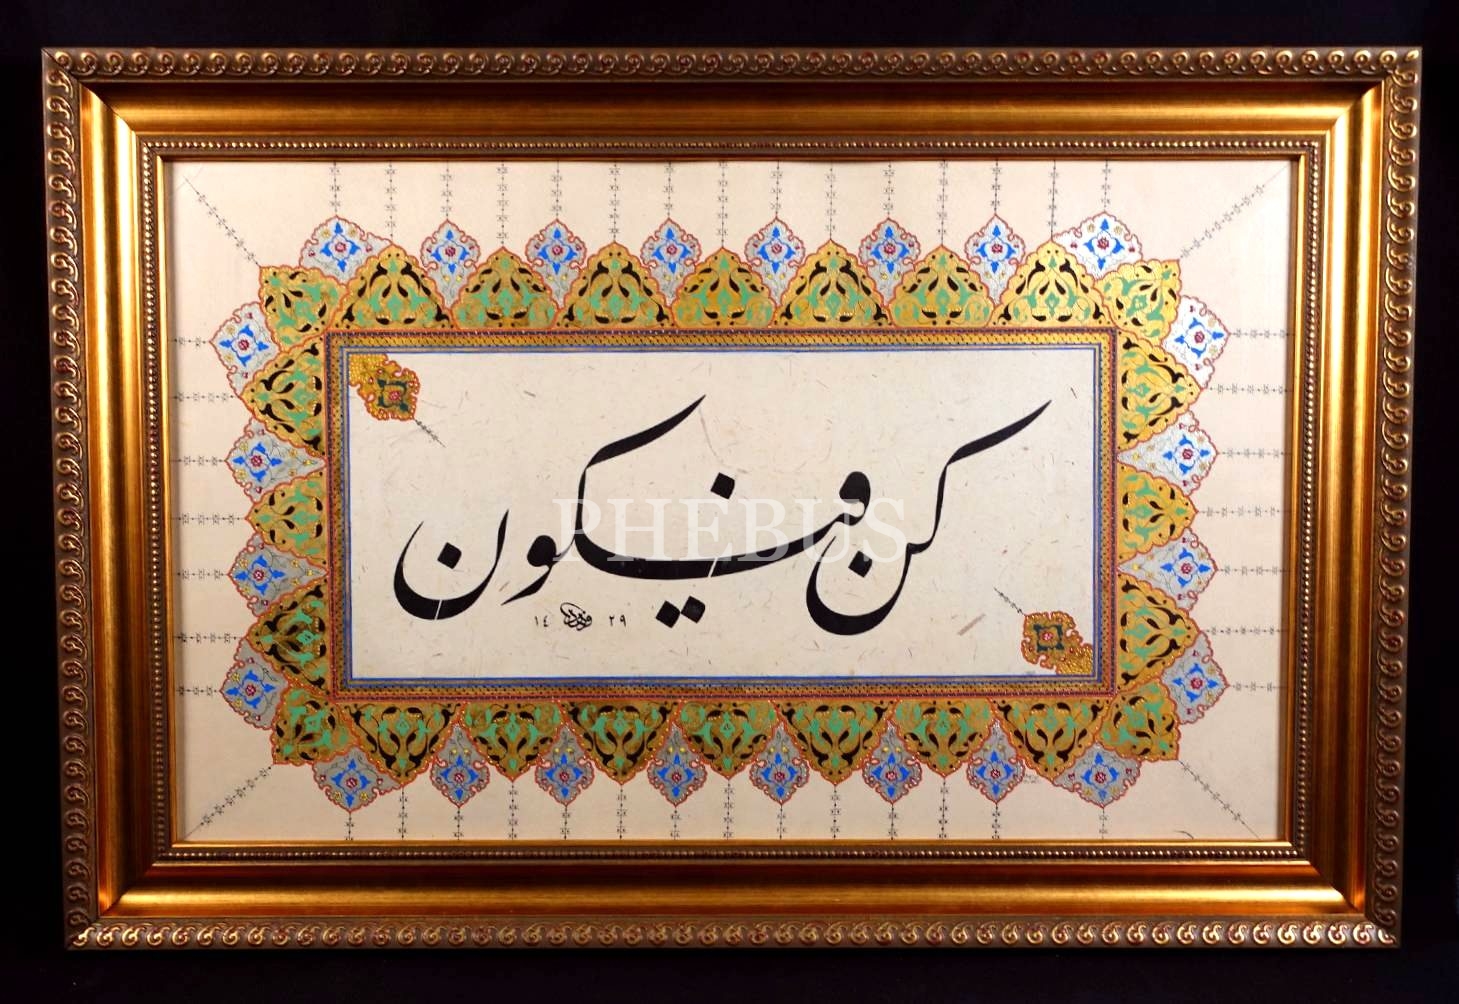 كن فيكون
PHEBUS
١٤ ٢٩